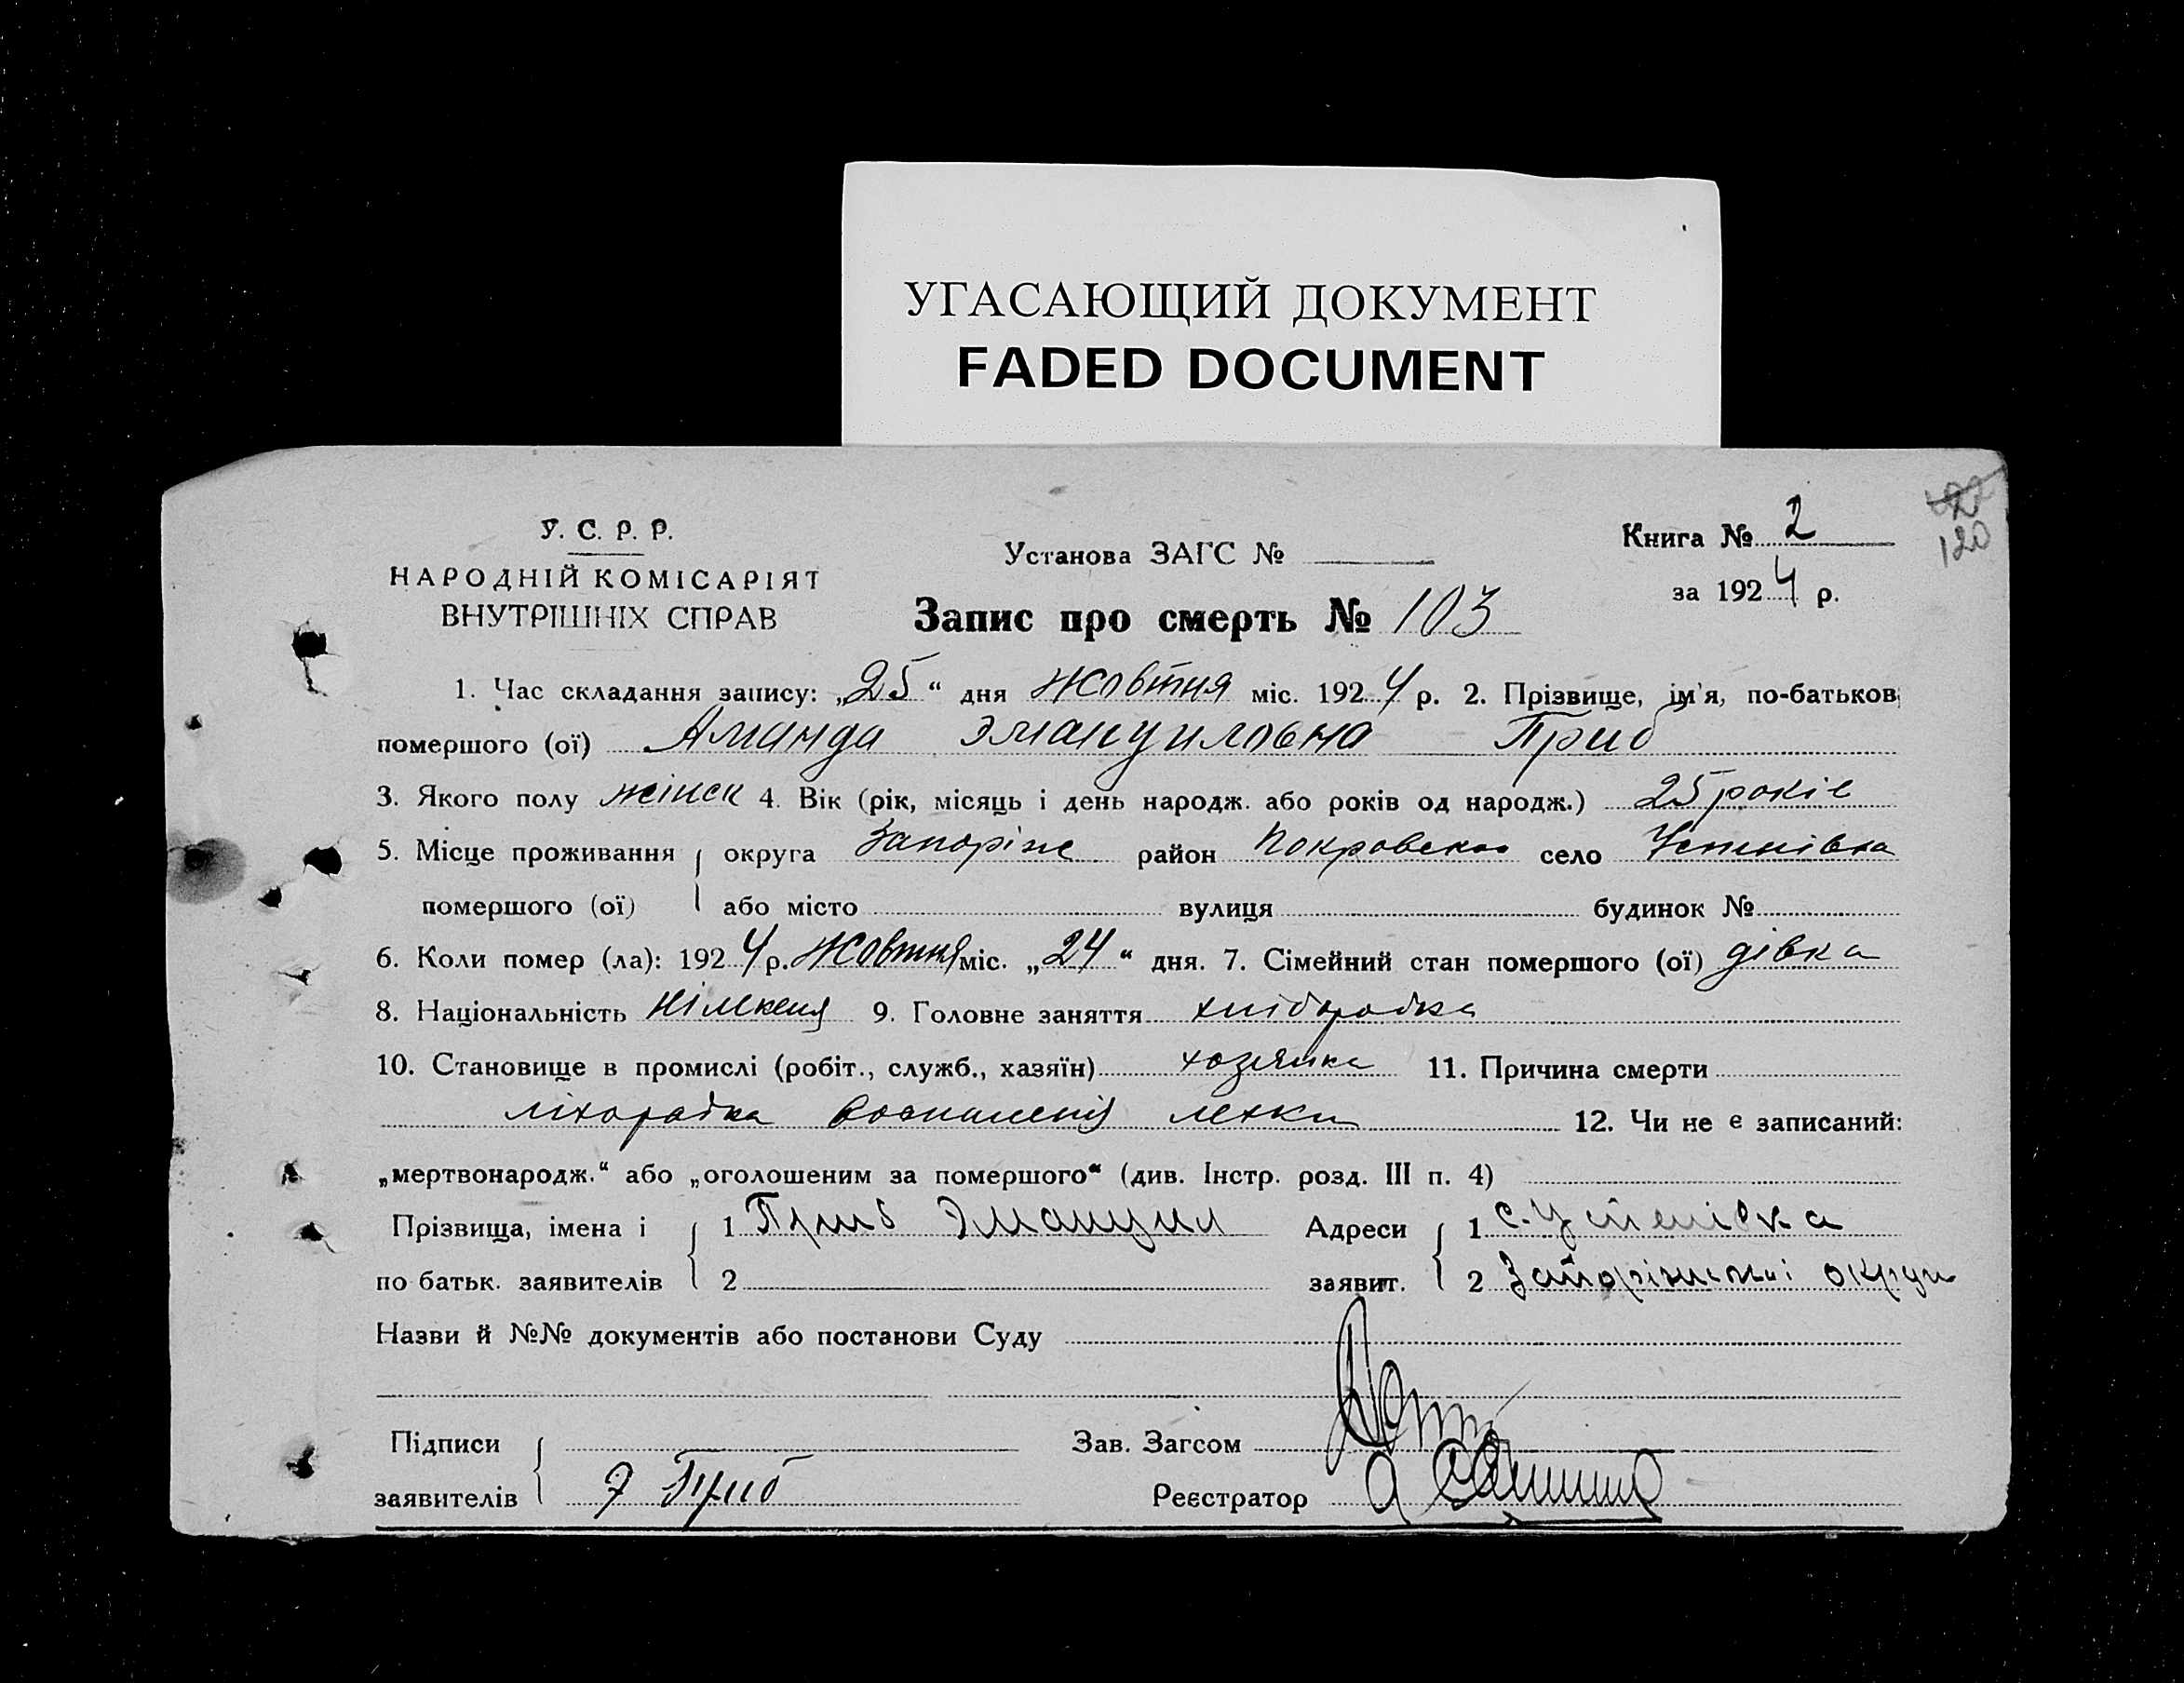 УГАСАЮЩИЙ ДОКУМЕНТ
FADED DOCUMENT
120
У. С. Р. Р.
НАРОДНІЙ КОМІСАРІЯТ
ВНУТРІШНІХ СПРАВ
Установа ЗАГС №
Книга № 2
за 1924 р.
Запис про смерть № 103
1. Час складання запису: „25“ дня жовтня міс. 1924 р. 2. Прізвище, ім'я, по-батьков
помершого (ої) Аманда Эмануиловна Приб
3. Якого полу жінск 4. Вік (рік, місяць і день народж. або років од народж.) 25 років
5. Місце проживання округа Запоріже район Покровской село
помершого (ої) або місто вулиця будинок №
6. Коли помер (ла): 1924 р. Жовтня міс. „24“ дня. 7. Сімейний стан помершого (ої) дівка
8. Національність 9. Головне заняття хліборобка
10. Становище в промислі (робіт., служб., хазяїн) хозяйка 11. Причина смерти
ліхорадка воспаленія лехки 12. Чи не є записаний:
„мертвонародж.“ або „оголошеним за помершого“ (див. Інстр. розд. III п. 4)
Прізвища, імена і 1 Приб Эмануил Адреси 1 с.
по батьк. заявителів 2 заявит. 2 Запоріжської округи
Назви й №№ документів або постанови Суду
Підписи Зав. Загсом
заявителів Э Приб Реєстратор